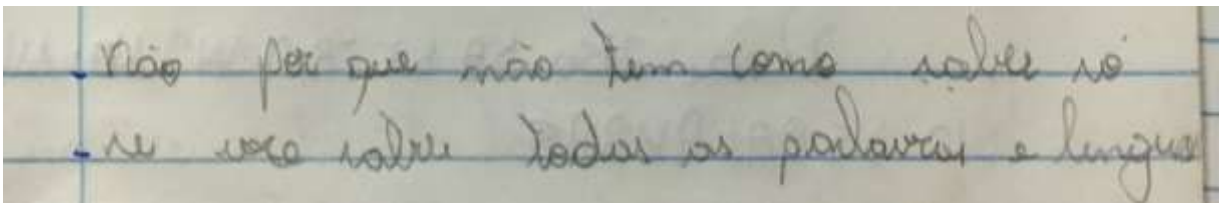 não por que não tem como sabre só
se voce sabre todas as palavras e lingua